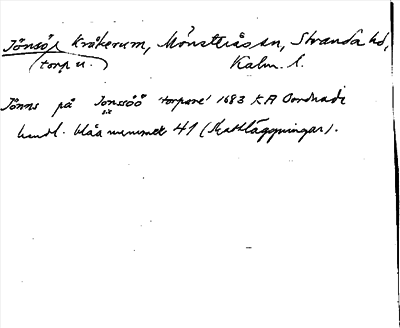 Jönsö, Kråkerum, Mönsterås sn, Stranda hd,
(torp u.) Kalm. l.
Jönns på Jonssöö 'torpare' 1683 KA Oordnade
handl. blåa nummret 41 (Skattläggningar).